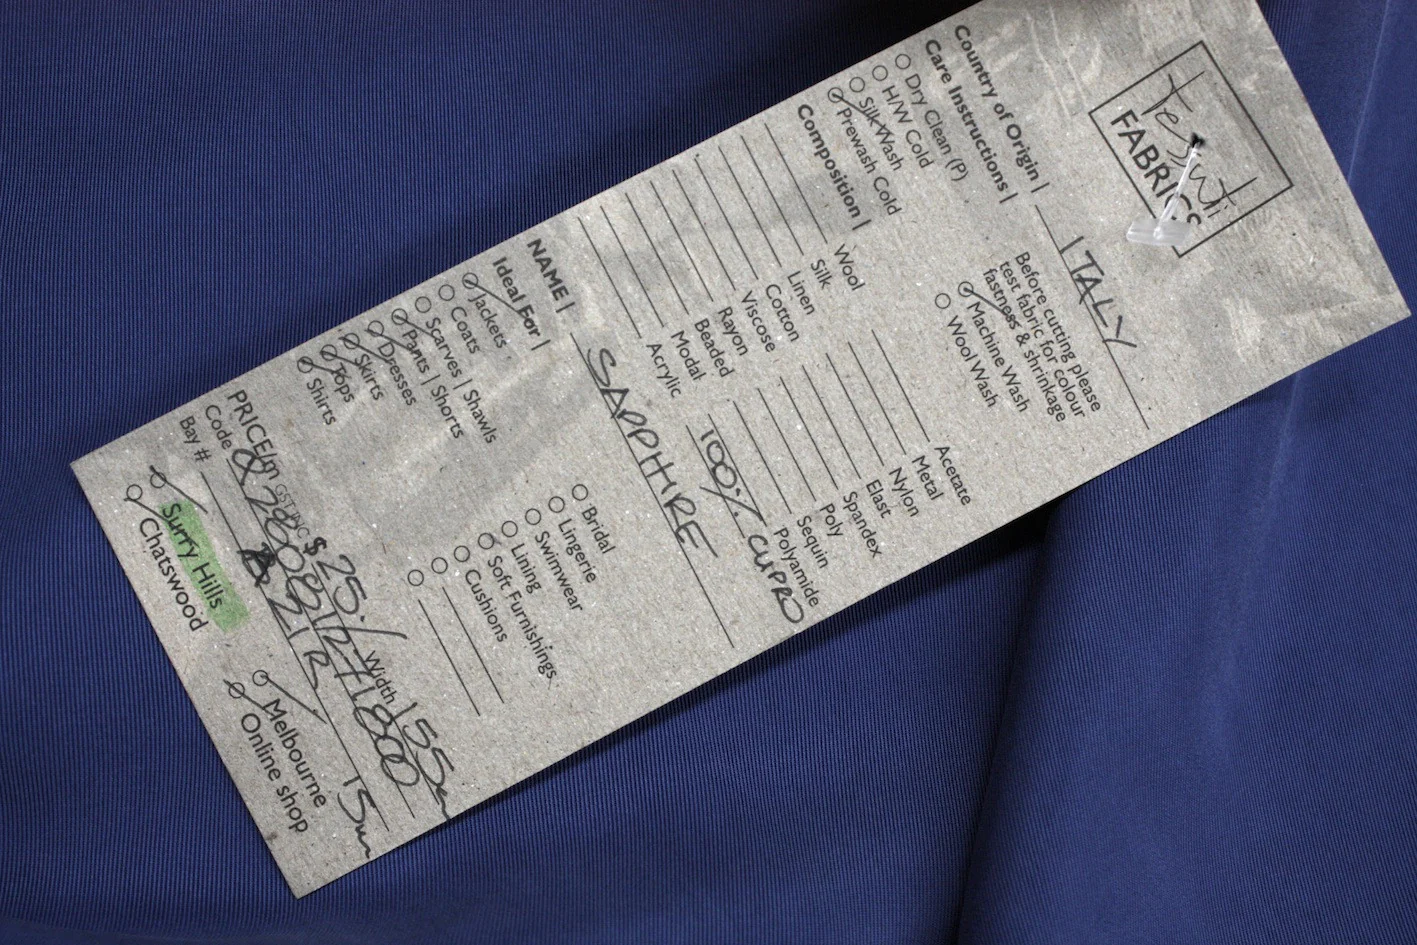 tessuti
FABRICS
Country of Origin | ITALY
Care Instructions |
Dry Clean (P)
H/W Cold
Silk Wash
Prewash Cold
Before cutting please
test fabric for colour
fastness & shrinkage
Machine Wash
Wool Wash
Composition |
Wool
Silk
Linen
Cotton
Viscose
Rayon
Beaded
Modal
Acrylic
Acetate
Metal
Nylon
Elast
Spandex
Poly
Sequin
Polyamide
100% CUPRO
NAME | SAPPHIRE
Ideal For |
Jackets
Coats
Scarves | Shawls
Pants | Shorts
Dresses
Skirts
Tops
Shirts
Bridal
Lingerie
Swimwear
Lining
Soft Furnishings
Cushions
PRICE/m GST INC $ 25 Width 155cm
Code
Bay # 21 R 15m
Surry Hills
Chatswood
Melbourne
Online shop